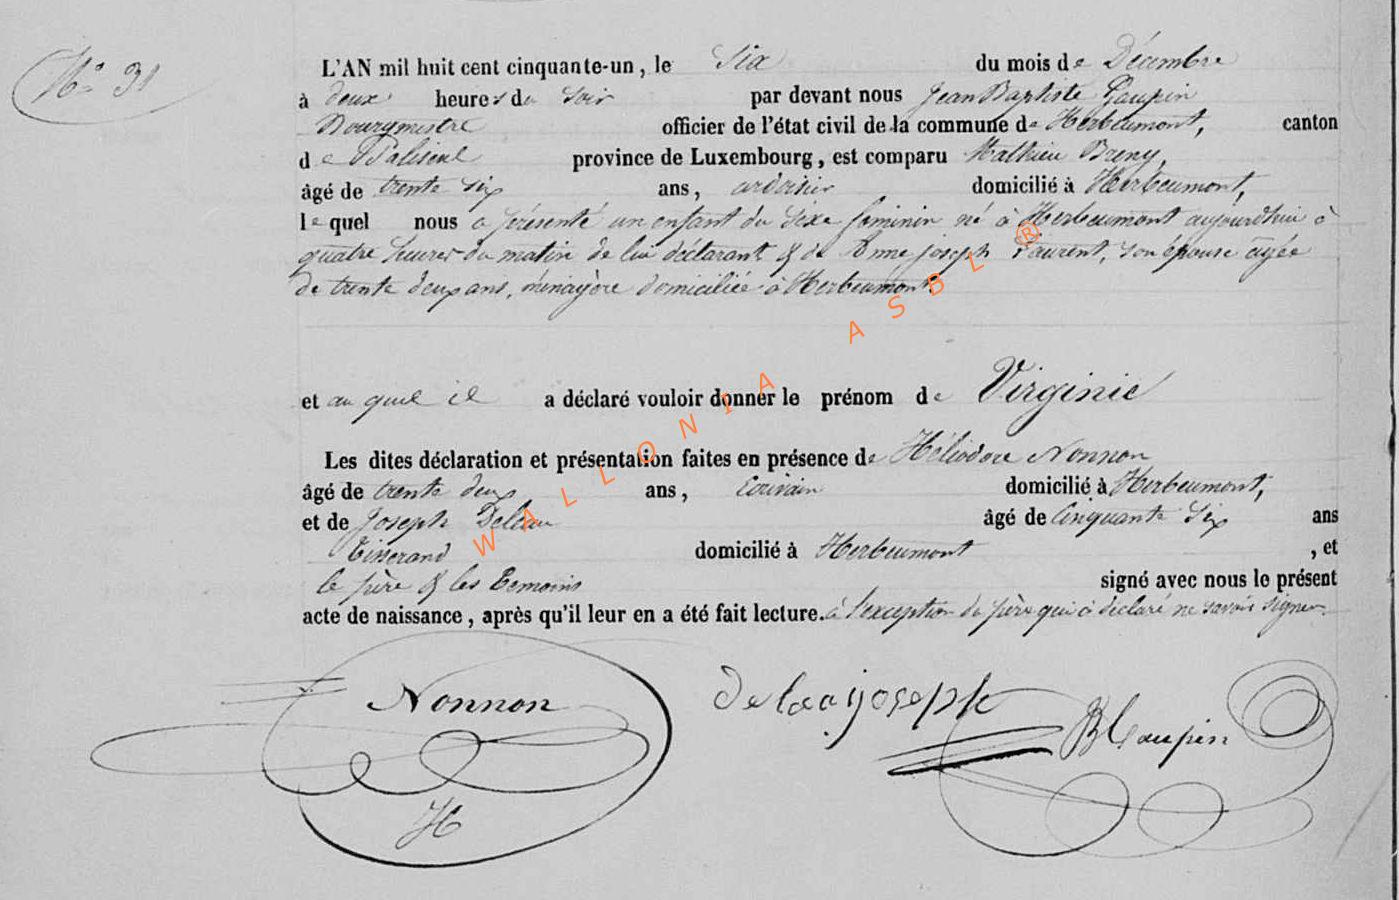 N° 31
L'AN mil huit cent cinquante-un, le Six du mois de Décembre
à deux heures du soir par devant nous Jean Baptiste Gaupin
Bourgmestre officier de l'état civil de la commune de Herbeumont, canton
de Paliseul province de Luxembourg, est comparu Mathieu Breny,
âgé de trente six ans, ardoisier domicilié à Herbeumont,
lequel nous a présenté un enfant du sexe feminin né à Herbeumont aujourdhui à
quatre heures du matin de lui déclarant & de Anne joseph Laurent, son épouse agée
de trente deux ans, ménagère domiciliée à Herbeumont.
et au quel il a déclaré vouloir donner le prénom de Virginie
Les dites déclaration et présentation faites en présence de Héliodore Nonnon
âgé de trente deux ans, Ecrivain domicilié à Herbeumont,
et de Joseph Deleau âgé de Cinquante Six ans
Tisserand domicilié à Herbeumont , et
le père & les Temoins signé avec nous le présent
acte de naissance, après qu'il leur en a été fait lecture. à l'exception du père qui à déclaré ne savoir signer.
Nonnon
H
joseph
B Gaupin
WALLONIA ASBL ®